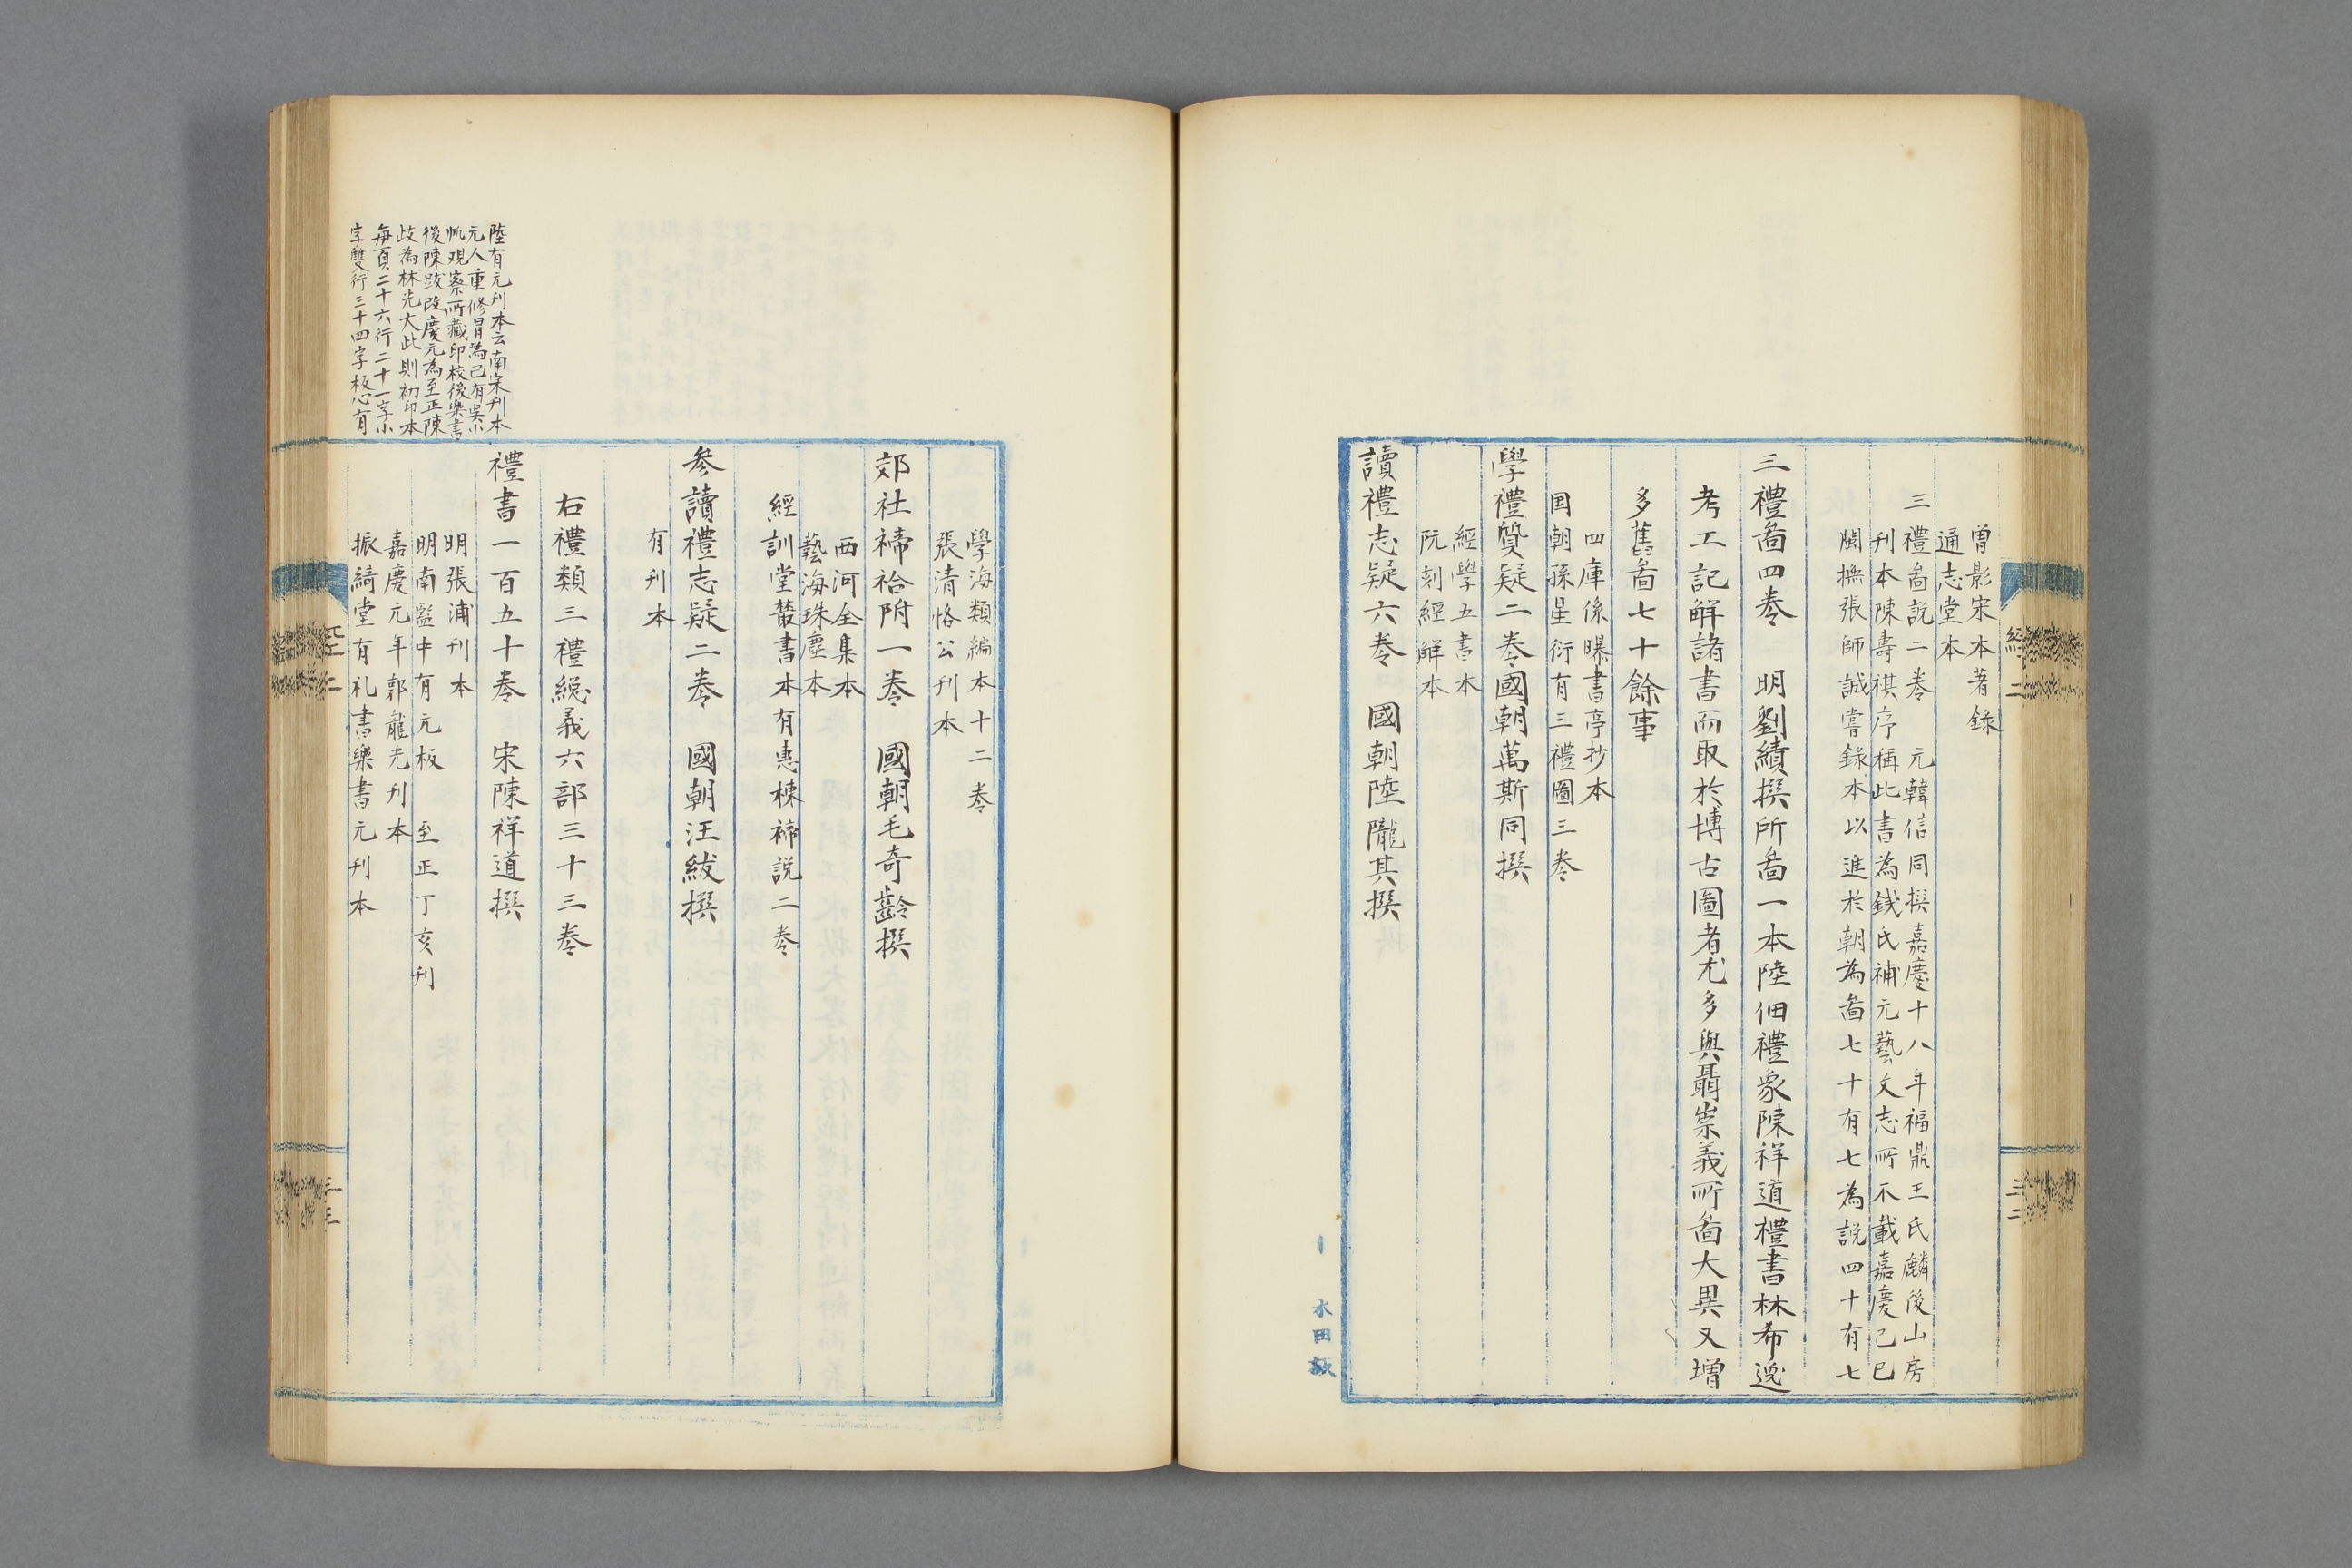 曽影宋本著錄
通志堂本
三禮啚説二卷　元韓信同撰嘉慶十八年福鼎王氏麟後山房
刊本陳壽祺序稱此書為錢氏補元藝文志所不載嘉慶己巳
閩撫張師誠嘗錄本以進於朝為啚七十有七為説四十有七
三禮啚四卷　明劉績撰所啚一本陸佃禮象陳祥道禮書林希逸
考工記觧諸書而取於博古圖者尤多與聶崇義所啚大異又增
多舊啚七十餘事
四庫係曝書亭抄本
国朝孫星衍有三禮圖三卷
學禮質疑二卷國朝萬斯同撰
經學五書本
阮刻經觧本
讀禮志疑六卷　國朝陸隴其撰
經二
三二
水田敲
學海類編本十二卷
張清恪公刊本
郊社禘祫附一卷　國朝毛奇齡撰
西河全集本
藝海珠塵本
經訓堂叢書本有惠棟禘説二卷
參讀禮志疑二卷　國朝汪紱撰
有刊本
右禮類三禮總義六部三十三卷
禮書一百五十卷　宋陳祥道撰
明張溥刊本
明南監中有元板　至正丁亥刊
嘉慶元年郭龍光刊本
振綺堂有礼書樂書元刊本
陸有元刊本云南宋刊本
元人重修冒為已有吳小
帆觀察所藏印校後樂書
後陳跋改慶元為至正陳
歧為林光大此則初印本
每頁二十六行二十一字小
字雙行三十四字板心有
經二
三三